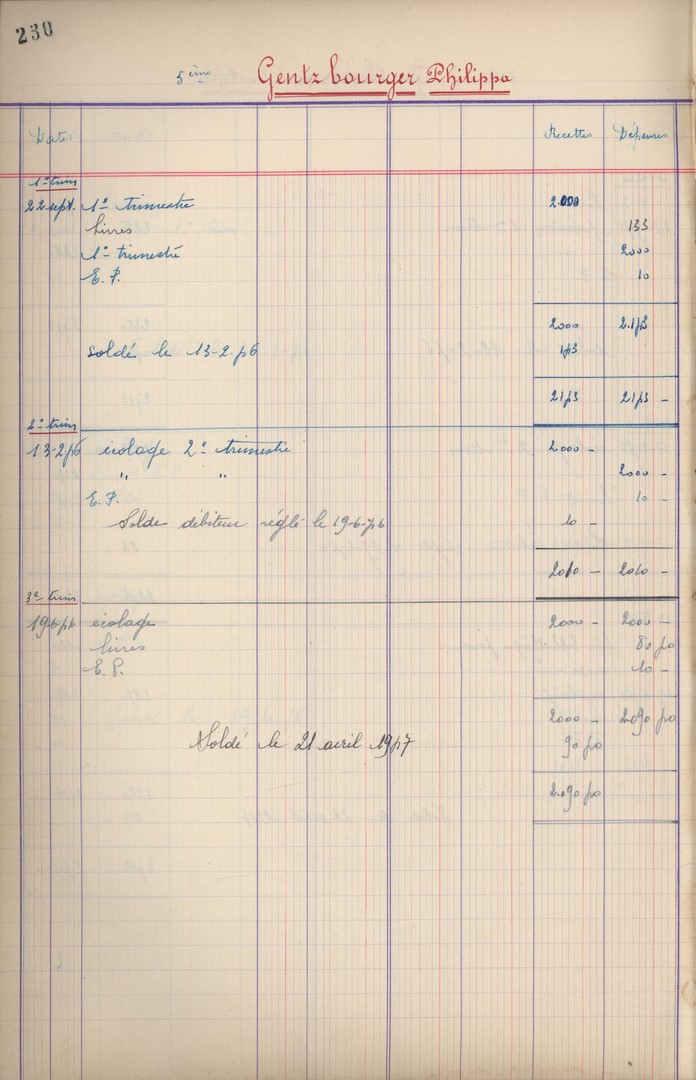 230
5ème Gentzbourger Philippe
Dates Recettes Dépenses
1er trim
22 sept. 1er trimestre 2.000
livres 133
1er trimestre 2000
E. P. 10
2000 2.153
soldé le 13-2-56 153
2153 2153 -
2e trim
13-2-56 écolage 2e trimestre 2000 -
" " 2000 -
E. P. 10 -
Solde débiteur réglé le 19-6-56 10 -
2010 - 2010 -
3e trim
19-6-56 écolage 2000 - 2000 -
livres 80 50
E. P. 10 -
2000 - 2090 50
Soldé le 21 avril 1957 90 50
2.090 50